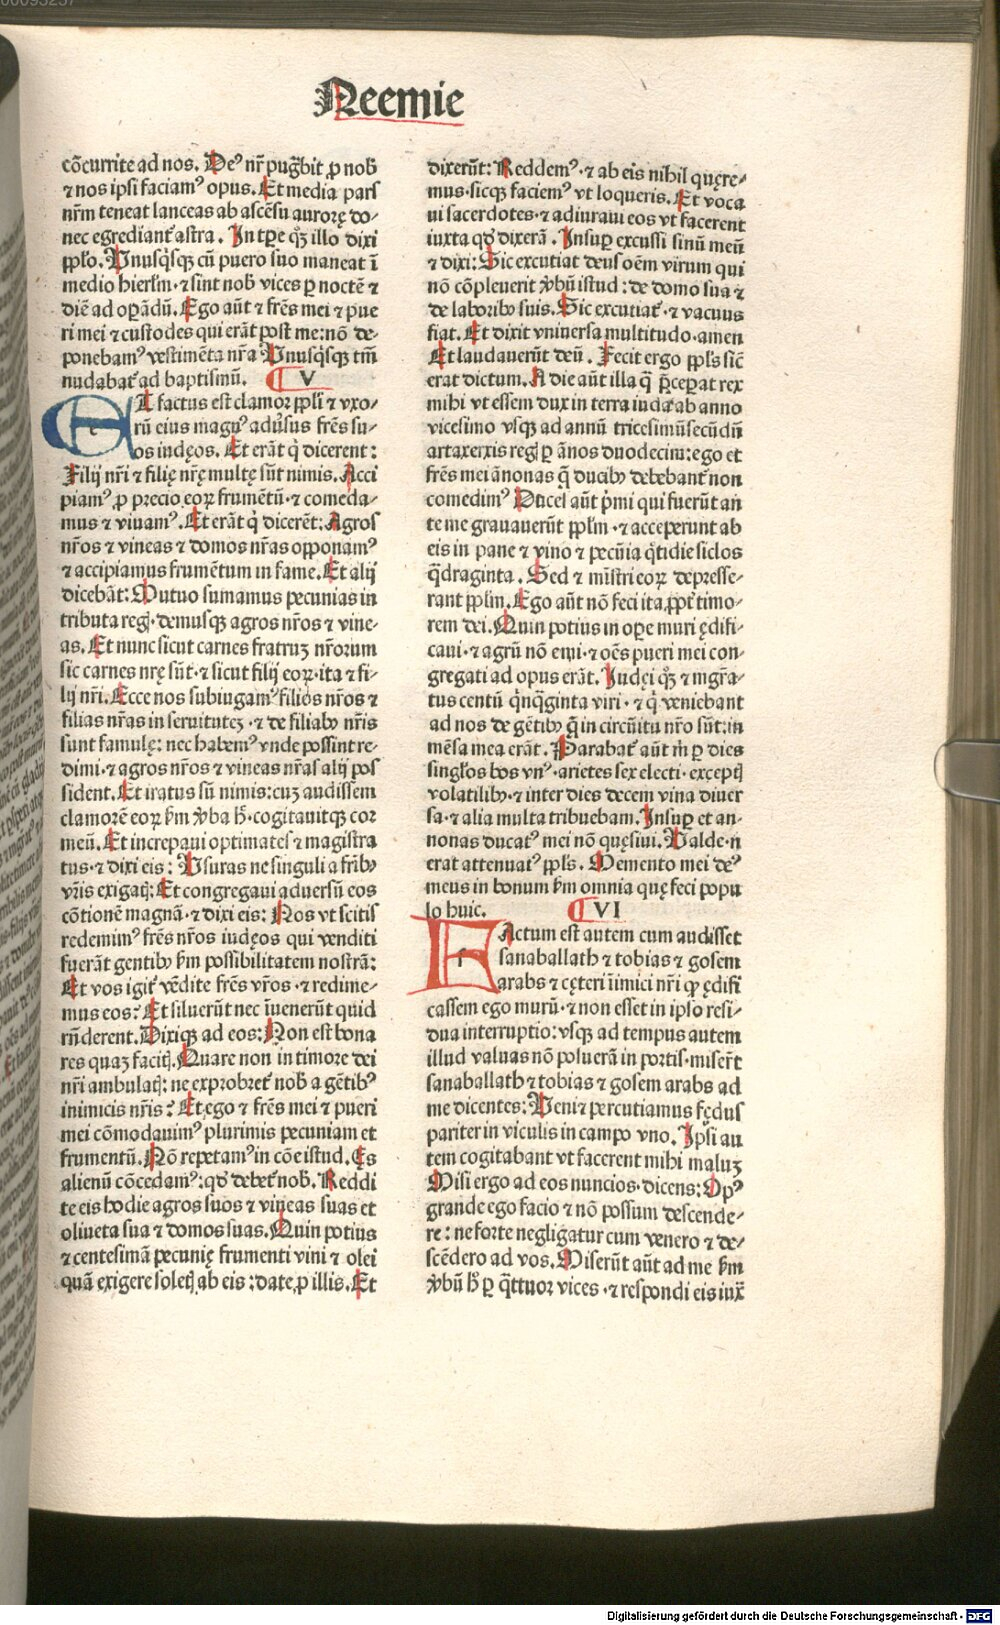 00093257
Neemie
cõcurrite ad nos. Deꝰ nr̄ pug̃bit ꝓ nob̃
⁊ nos ipsi faciamꝰ opus. Et media pars
nr̄m teneat lanceas ab ascẽsu aurorę do-
nec egrediant᷑ astra. In tp̄e qꝫ illo dixi
pp̄lo. Vnusq̇sqꝫ cũ puero suo maneat ĩ
medio hierl̃m ⁊ sint nob̃ vices ꝑ noctẽ ⁊
diẽ ad oꝑãdũ. Ego aũt ⁊ fr̃es mei ⁊ pue
ri mei ⁊ custodes qui erãt post me: nõ de-
ponebamꝰ vestimẽta nr̃a Vnusq̇sqꝫ tm̃
nudabat᷑ ad baptismũ. V
ET factus est clamor pp̄li ⁊ vxo-
rũ eius magnꝰ aduꝰsus fr̃es su-
os iudęos. Et erãt q̇ dicerent:
Filij nr̃i ⁊ filię nr̃ę multę sũt nimis. Acci
piamꝰ ꝓ precio eoꝝ frumẽtũ ⁊ comeda-
mus ⁊ viuamꝰ. Et erãt q̇ dicerẽt: Agros
nr̃os ⁊ vineas ⁊ domos nr̃as opponamꝰ
⁊ accipiamus frumẽtum in fame. Et alij
dicebãt: Mutuo sumamus pecunias in
tributa regꝭ demusqꝫ agros nr̃os ⁊ vine-
as. Et nunc sicut carnes fratruꝫ nr̃orum
sic carnes nr̃ę sũt ⁊ sicut filij eoꝝ ita ⁊ fi-
lij nr̃i. Ecce nos subiugamꝰ filios nr̃os ⁊
filias nr̃as in seruituteꝫ ⁊ de filiabꝫ nr̃is
sunt famulę: nec habemꝰ vnde possint re-
dimi ⁊ agros nr̃os ⁊ vineas nr̃as alij pos
sident. Et iratus sũ nimis: cuꝫ audissem
clamorẽ eoꝝ ẜm ꝟba hꝭ cogitauitqꝫ cor
meũ. Et increpaui optimates ⁊ magistra
tus ⁊ dixi eis: Vsuras ne singuli a fr̃ibꝫ
vr̃is exigatꝭ: Et congregaui aduersũ eos
cõtionẽ magnã ⁊ dixi eis: Nos vt scitis
redemimꝰ fr̃es nr̃os iudęos qui venditi
fuerãt gentibꝫ ẜm possibilitatem nostrã:
Et vos igit᷑ vẽdite fr̃es vr̃os ⁊ redime-
mus eos? Et siluerũt nec ĩuenerũt quid
rñderent. Dixiqꝫ ad eos: Non est bona
res quaꝫ facitꝭ. Quare non in timore dei
nr̃i ambulatꝭ: ne exprobret᷑ nob̃ a gẽtibꝰ
inimicis nr̃is? Et ego ⁊ fr̃es mei ⁊ pueri
mei cõmodauimꝰ plurimis pecuniam et
frumentũ. Nõ repetamꝰ in cõe istud. Ęs
alienũ cõcedamꝰ: qd̃ debet᷑ nob̃. Reddi
te eis hodie agros suos ⁊ vineas suas et
oliueta sua ⁊ domos suas. Quin potius
⁊ centesimã pecunię frumenti vini ⁊ olei
quã exigere soletꝭ ab eis: date ꝓ illis. Et
dixerũt: Reddemꝰ ⁊ ab eis nihil quęre-
mus sicqꝫ faciemꝰ vt loqueris. Et voca
ui sacerdotes ⁊ adiuraui eos vt facerent
iuxta qd̃ dixerã. Insuꝑ excussi sinũ meũ
⁊ dixi: Sic excutiat deus oẽm virum qui
nõ cõpleuerit ꝟbũ istud: de domo sua ⁊
de laboribꝫ suis. Sic excutiat᷑ ⁊ vacuus
fiat. Et dixit vniuersa multitudo amen
Et laudauerũt deũ. Fecit ergo pp̄ls sic̃
erat dictum. A die aũt illa q̃ p̄ceꝑat rex
mihi vt essem dux in terra iuda ab anno
vicesimo vsqꝫ ad annũ tricesimũ secũdũ
artaxerxis regꝭ ꝑ ãnos duodecim: ego et
fr̃es mei ãnonas q̃ ducibꝫ debebant᷑ non
comedimꝰ Duces aũt p̃mi qui fuerũt an
te me grauauerũt pp̄lm ⁊ acceperunt ab
eis in pane ⁊ vino ⁊ pecũia q̃tidie siclos
q̃draginta. Sed ⁊ mĩstri eoꝝ depresse-
rant pp̄lm. Ego aũt nõ feci ita ꝓpt᷑ timo-
rem dei. Quin potius in oꝑe muri ędifi-
caui ⁊ agrũ nõ emi ⁊ oẽs pueri mei con-
gregati ad opus erãt. Iudęi qꝫ ⁊ mgr̃a-
tus centũ q̇nq̃ginta viri ⁊ q̇ veniebant
ad nos de gẽtibꝫ q̃ in circũitu nr̃o sũt: in
mẽsa mea erãt. Parabat᷑ aũt m̃ ꝑ dies
singl̃os bos vnꝰ arietes sex electi exceptꝭ
volatilibꝫ ⁊ inter dies decem vina diuer
sa ⁊ alia multa tribuebam. Insuꝑ et an-
nonas ducatꝰ mei nõ quęsiui. Valde n̄
erat attenuatꝰ pp̄ls. Memento mei deꝰ
meus in bonum ẜm omnia quę feci popu
lo huic. VI
FActum est autem cum audisset
sanaballath ⁊ tobias ⁊ gosem
arabs ⁊ cęteri ĩimici nr̃i ꝙ ędifi
cassem ego murũ ⁊ non esset in ipso resi-
dua interruptio: vsqꝫ ad tempus autem
illud valuas nõ posuerã in portis miser̃t
sanaballath ⁊ tobias ⁊ gosem arabs ad
me dicentes: Veni ⁊ percutiamus fędus
pariter in viculis in campo vno. Ipsi au
tem cogitabant vt facerent mihi maluꝫ
Misi ergo ad eos nuncios dicens: Opꝰ
grande ego facio ⁊ nõ possum descende-
re: ne forte negligatur cum venero ⁊ de-
scẽdero ad vos. Miserũt aũt ad me ẜm
ꝟbũ hꝭ ꝑ q̃ttuor vices ⁊ respondi eis iux̃
Digitalisierung gefördert durch die Deutsche Forschungsgemeinschaft - DFG